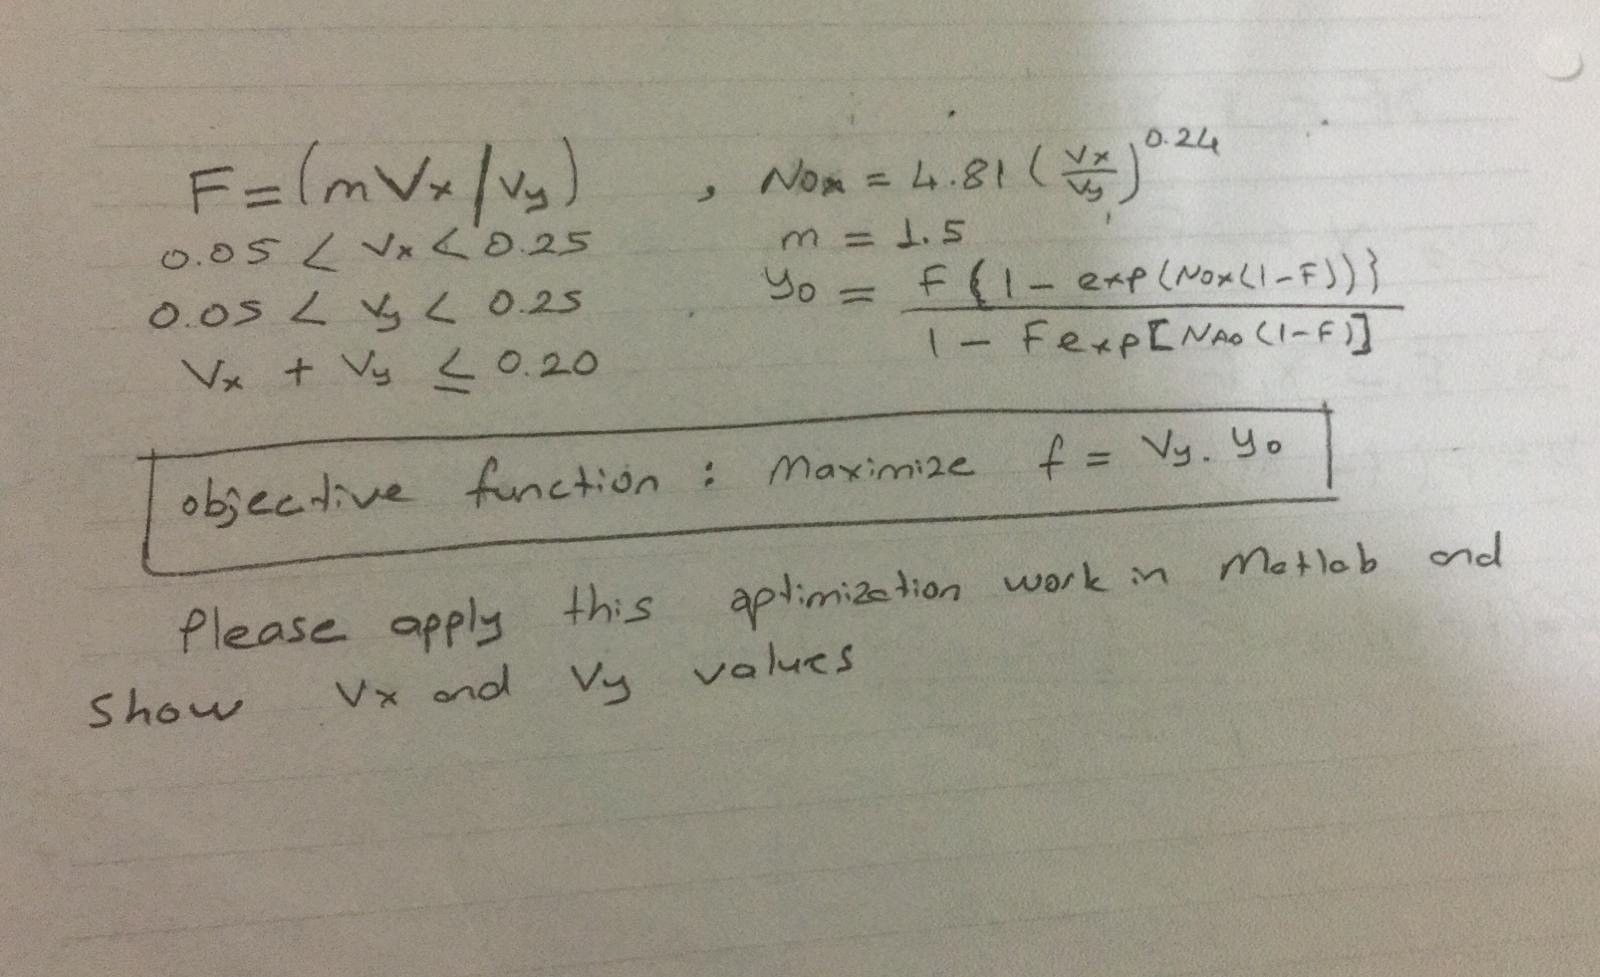 F = (m Vx / Vy) , Nox = 4.81 (Vx/Vy)^0.24
0.05 < Vx < 0.25 m = 1.5
0.05 < Vy < 0.25 yo = F{1 - exp(Nox(1-F))} / 1 - Fexp[NAo(1-F)]
Vx + Vy ≤ 0.20
objective function : Maximize f = Vy. yo
Please apply this optimization work in Matlab and
Show Vx and Vy values